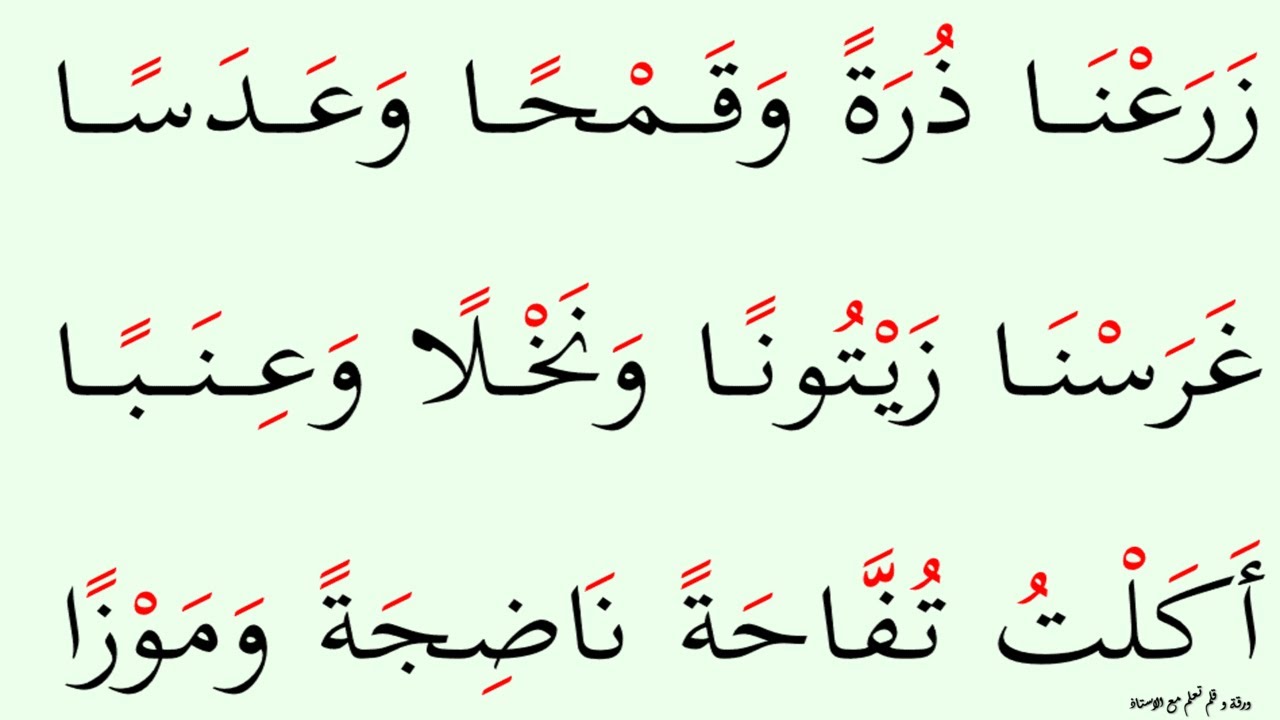 زَرَعْنَا ذُرَةً وَقَمْحًا وَعَدَسًا
غَرَسْنَا زَيْتُونًا وَنَخْلًا وَعِنَبًا
أَكَلْتُ تُفَّاحَةً نَاضِجَةً وَمَوْزًا
ورقة و قلم تعلم مع الاستاذ